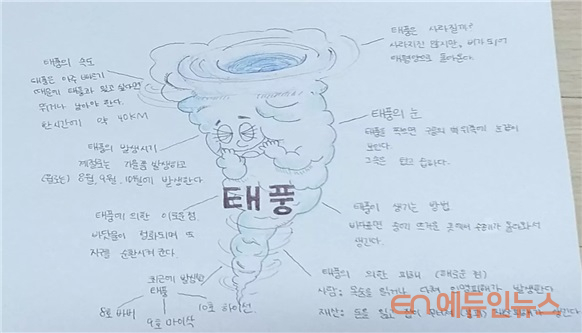 태풍의 속도
태풍은 아주 빠르기
때문에 태풍과 있고 싶다면
뛰거나 날아야 한다.
한시간에 약 40KM
태풍의 발생시기
계절로는 가을쯤 발생하고
(월로는) 8월, 9월, 10월에 발생한다.
태풍에 의한 이로운점
바닷물이 정화되며 또
지구를 순환시켜 준다.
최근에 발생한
태풍
8호 바비
9호 마이삭
10호 하이선
태풍
태풍은 사라질까?
사라지진 않지만, 비가 되어
태평양으로 돌아온다.
태풍의 눈
태풍을 위쪽에 눈동이
보인다.
그 속은 맑고 흐리다.
태풍이 생기는 방법
바다표면 중에 뜨거운 곳에서
생긴다.
태풍의 의한 피해 (해로운 점)
사람: 목숨을 잃거나 다쳐 인명피해가 발생한다
재산: 돈을 잃는
EN 에듀인뉴스